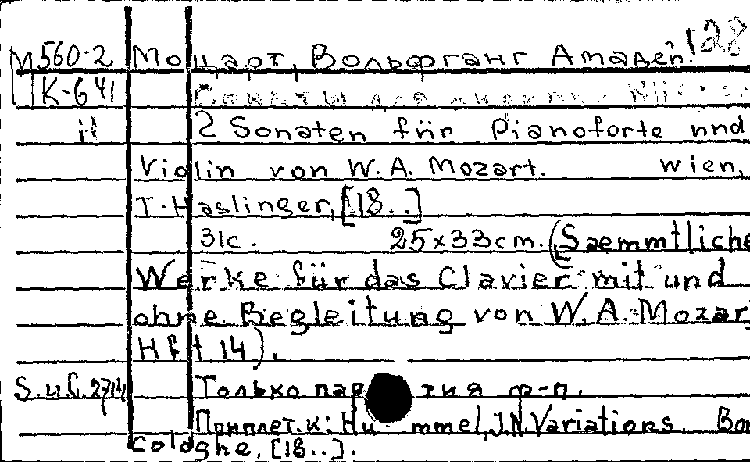 М560-2 Моцарт, Вольфганг Амадей. 128
К-641
2 Sonaten für Pianoforte und
Violin von W. A. Mozart. Wien,
T. Haslinger, [18..]
31с. 25x33cm. (Saemmtliche
Werke für das Clavier mit und
ohne Begleitung von W. A. Mozar
Hft 14).
Только партия ф-п.
Приплет. к: Hummel, J. N. Variations. Bon
Cologne, [18..].